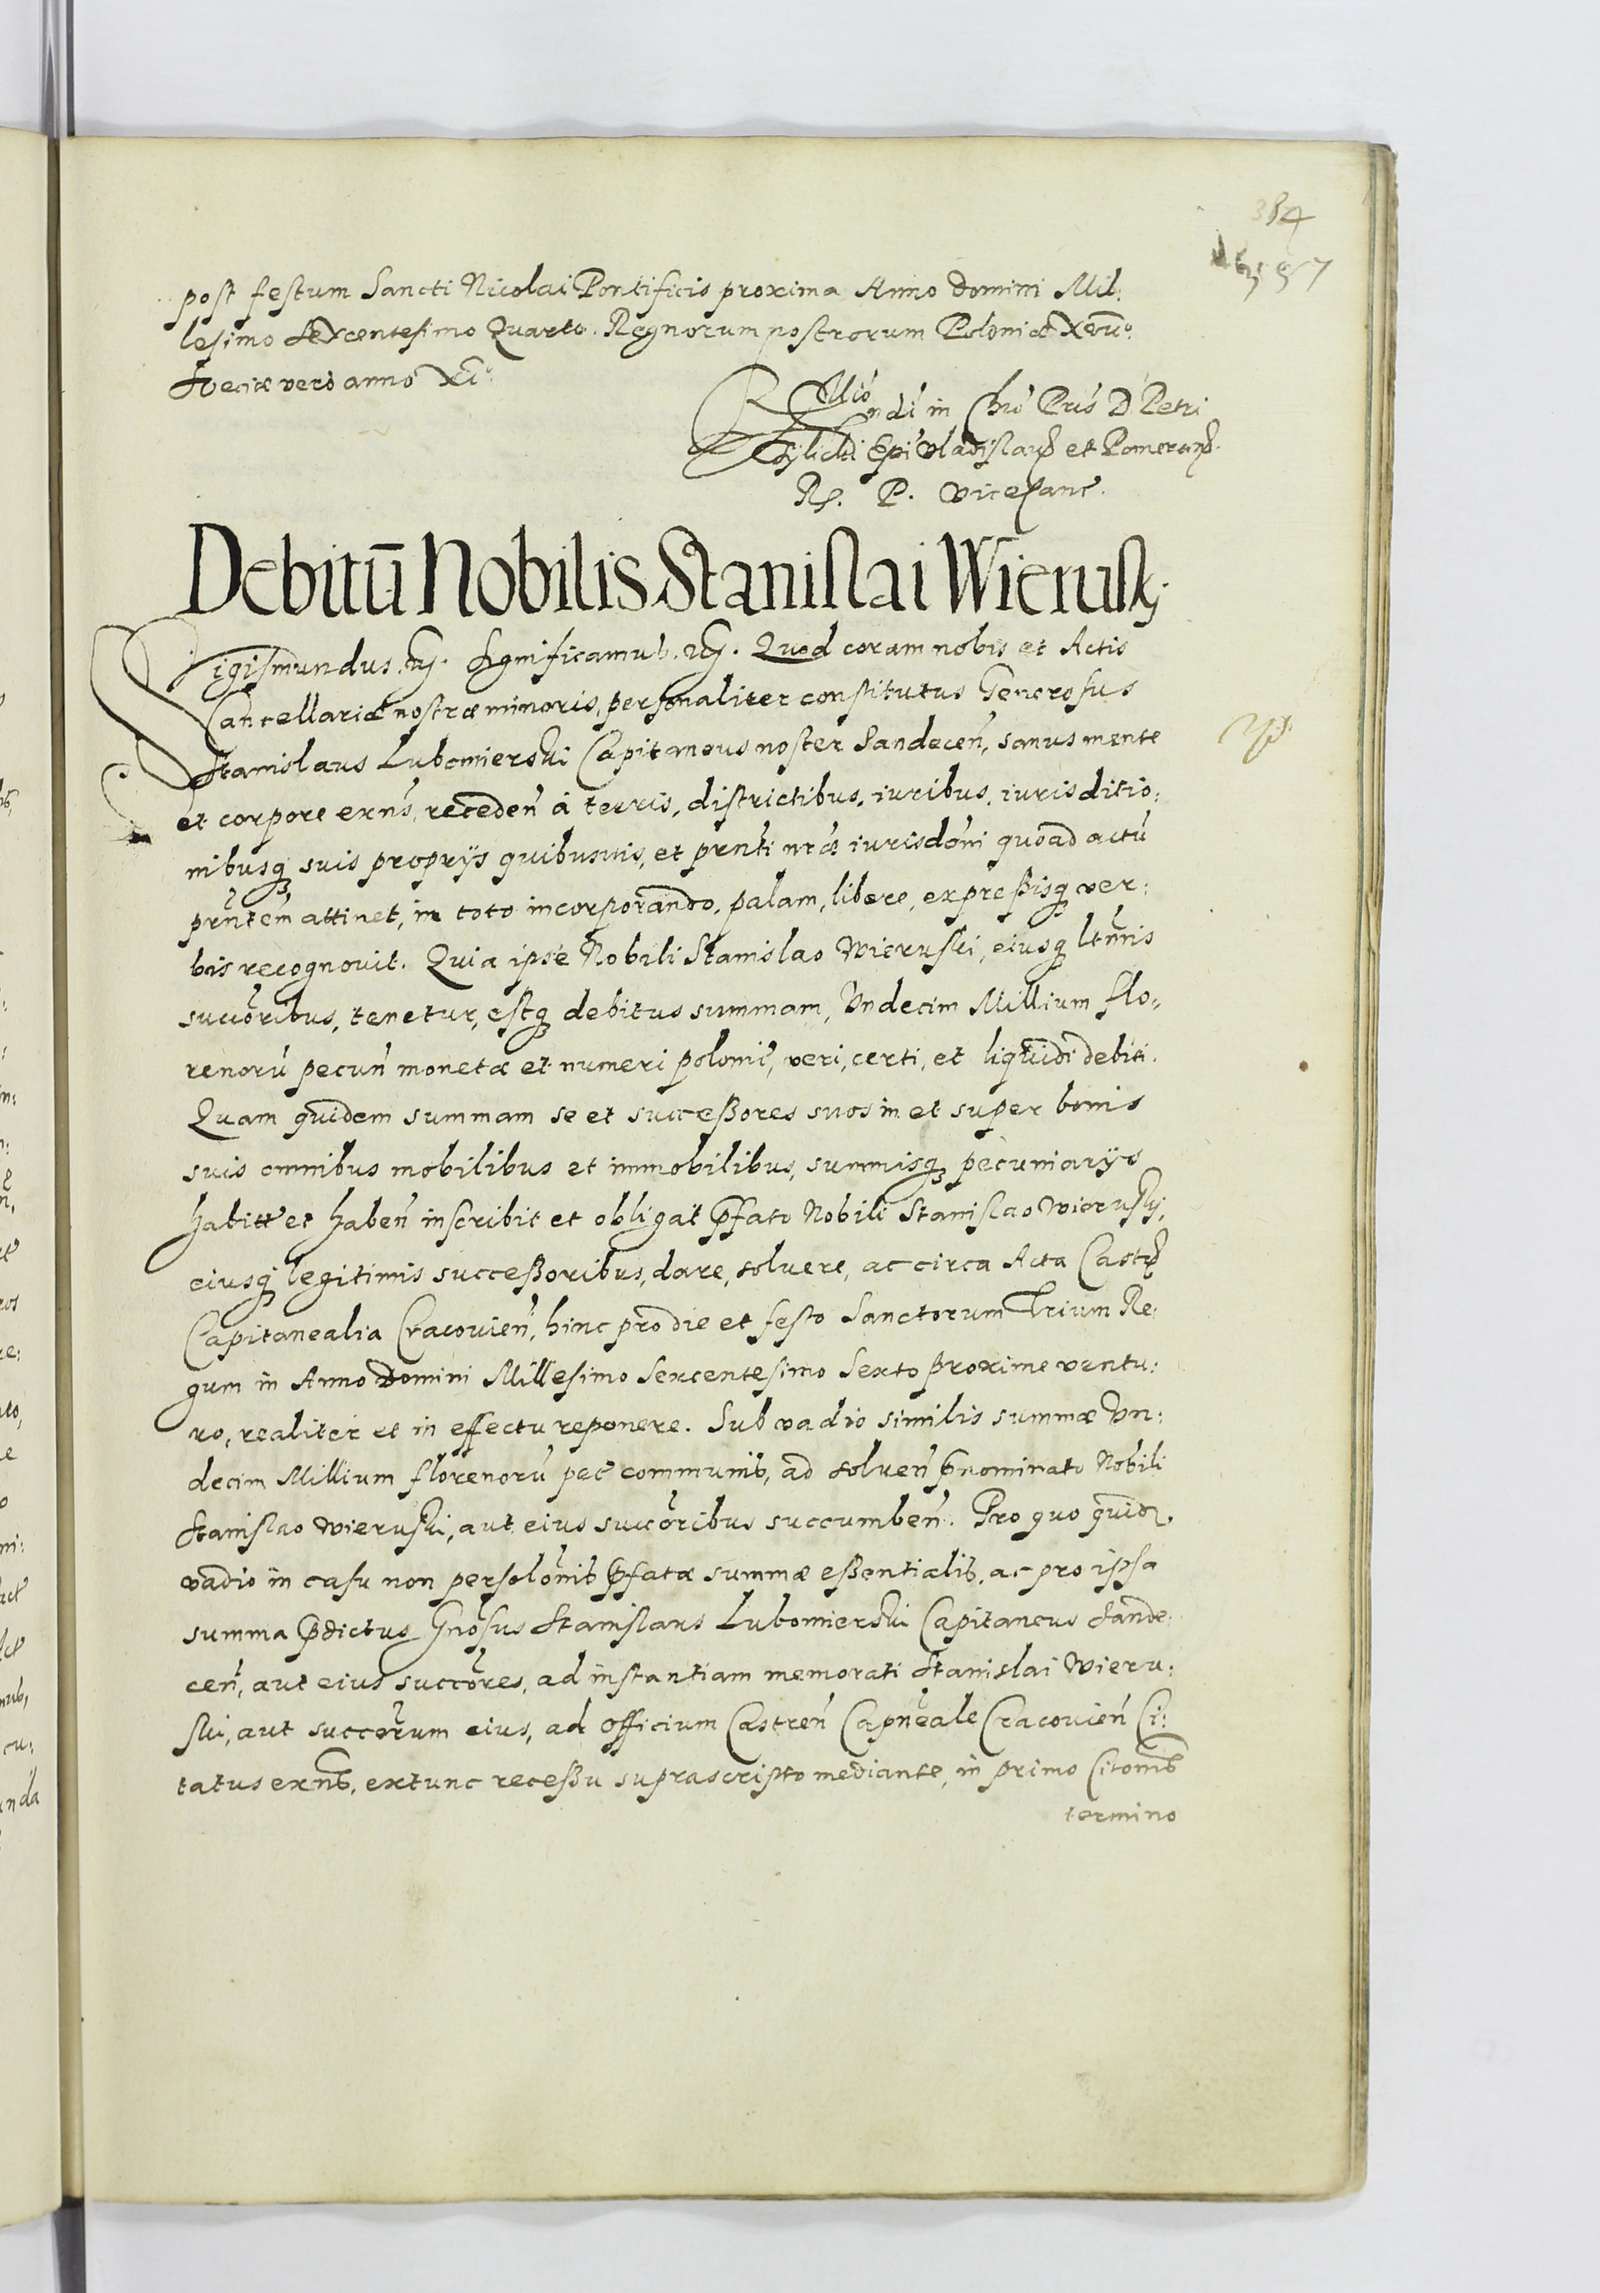 384
post festum Sancti Nicolai Pontificis proxima Anno Domini Mil:
lesimo Sexcentesimo Quarto. Regnorum nostrorum Poloniæ
Sveciæ vero anno XI.
Rndi in Chro Pris D Petri
Tylicki Epi Vladislauien et Pomeraniæ
R. P. Vicecanc.
Debitū Nobilis Stanislai Wierusky.
Sigismundus etc. Significamus etc. Quod coram nobis et Actis
Cancellariæ nostræ minoris, personaliter constitutus Generosus
Stanislaus Lubomierski Capitaneus noster Sandecen̄, sanus mente
et corpore exn̄s, receden̄ à terris, districtibus, iuribus, iurisditio:
nibusq suis proprys quibusuis, et prn̄ti nr̄æ iurisdōni quoad actū
prn̄tem attinet, in toto incorporando, palam, libere, expreßisq ver:
bis recognovit. Quia ipse Nobili Stanislao Wieruski, eiusq ltm̄is
succōribus, tenetur, estq debitus summam, Vndecim Millium flo:
renorū pecun̄ monetæ et numeri polonic̄, veri, certi, et liquidi debiti.
Quam quidem summam se et succeßores suos in et super bonis
suis omnibus mobilibus et immobilibus, summisq pecuniarys
habitt et haben̄ inscribit et obligat p̄fato Nobili Stanislao Wierusky,
eiusq legitimis succeßoribus, dare, soluere, ac circa Acta Castr
Capitanealia Cracouien̄, hinc pro die et festo Sanctorum Trium Re:
gum in Anno Domini Millesimo Sexcentesimo Sexto proxime ventu:
ro, realiter et in effectu reponere. Sub vadio similis summæ Vn:
decim Millium florenorū pec̄ communis, ad soluen̄ p̄nominato Nobili
Stanislao Wieruski, aut eius succōribus succumben̄. Pro quo quid
vadio in casu non persolōnis p̄fatæ summæ eßentialis, ac pro ipsa
summa p̄dictus Gnōsus Stanislaus Lubomierski Capitaneus Sande:
cen̄, aut eius succōres, ad instantiam memorati Stanislai Wieru:
ski, aut succōrum eius, ad Officium Castren̄ Capn̄eale Cracouien̄ Ci:
tatus exn̄s, extunc receßu suprascripto mediante, in primo Citōnis
termino